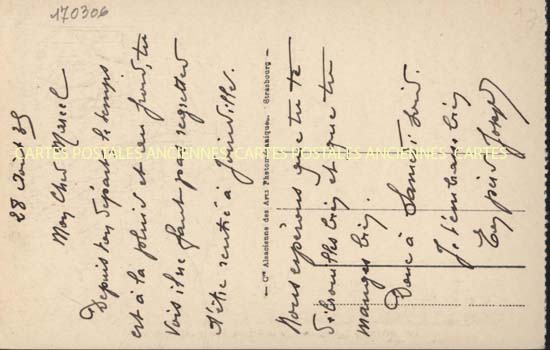 170306
28 Août 35
Mon Cher Marcel
Depuis ton départ le temps
est à la pluie et au froid, tu
vois il ne faut pas regretter
d'être rentré à Joinville.
Cie Alsacienne des Arts Photomécaniques, Strasbourg
Nous espérons que tu te
bien et que tu
manges bien.
Donc à Samedi soir.
Je t'embrasse bien
Ton Joseph
CARTES POSTALES ANCIENNES CARTES POSTALES ANCIENNES CARTES POSTALES ANCIENNES